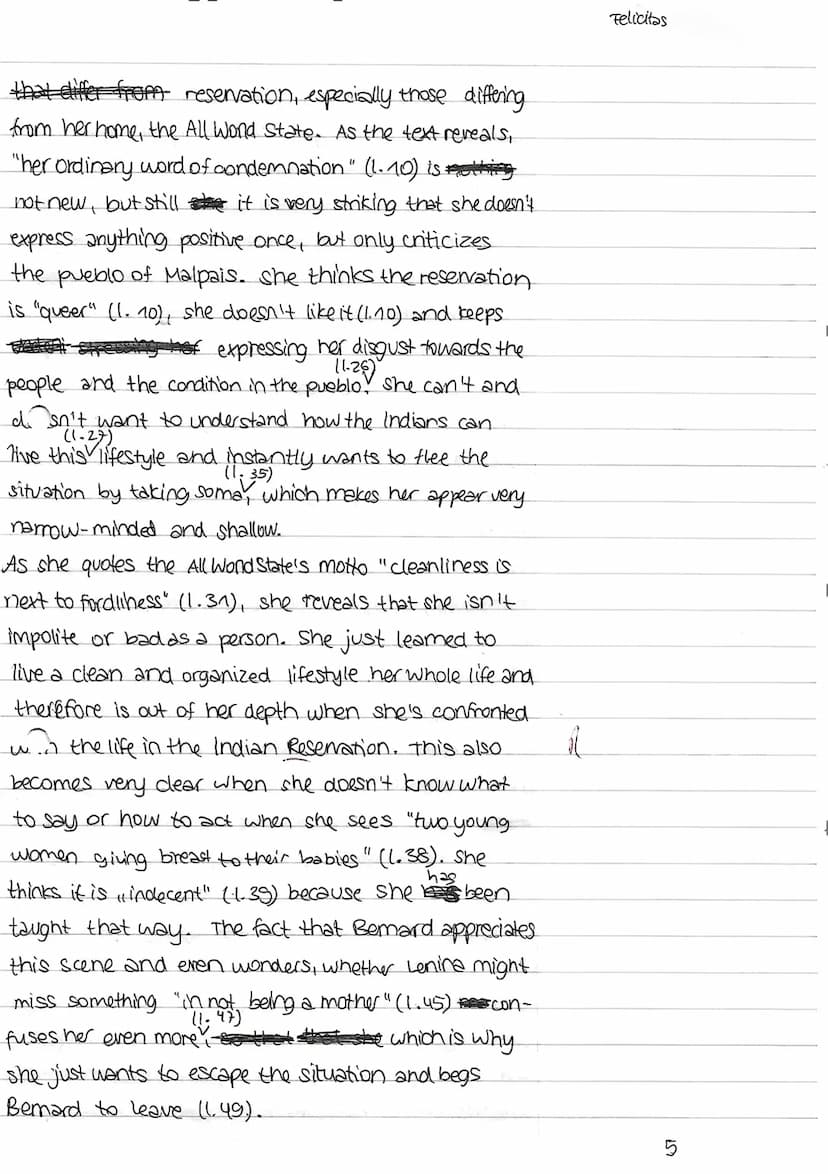 Felicitas
that differ from reservation, especially those differing
from her home, the All Word State. As the text reveals,
"her ordinary word of condemnation" (l. 10) is nothing
not new, but still she it is very striking that she doesn't
express anything positive once, but only criticizes
the pueblo of Malpais. She thinks the reservation
is "queer" (l. 10), she doesn't like it (l. 10) and keeps
stressing her expressing her disgust towards the
(l. 26)
people and the condition in the pueblo. She can't and
d sn't want to understand how the Indians can
(l. 27)
live this lifestyle and instantly wants to flee the
(l. 35)
situation by taking soma, which makes her appear very
narrow-minded and shallow.
As she quotes the All Word State's motto "cleanliness is
next to fordliness" (l. 31), she reveals that she isn't
impolite or bad as a person. She just learned to
live a clean and organized lifestyle her whole life and
therefore is out of her depth when she's confronted
w h the life in the Indian Reservation. This also
becomes very clear when she doesn't know what
to say or how to act when she sees "two young
women giving breast to their babies" (l. 38). She
has
thinks it is „indecent" (l. 39) because she been
taught that way. The fact that Bernard appreciates
this scene and even wonders, whether Lenina might
miss something "in not being a mother" (l. 45) con-
(l. 47)
fuses her even more, so that that she which is why
she just wants to escape the situation and begs
Bernard to leave (l. 49).
5